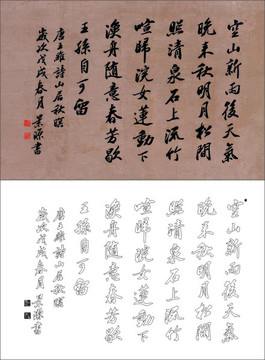 空山新雨後天氣
晚来秋明月松間
照清泉石上流竹
喧歸浣女蓮動下
漁舟隨意春芳歇
王孫自可留
唐王維詩山居秋暝
歲次戊戌春月景源書
空山新雨後天氣
晚来秋明月松間
照清泉石上流竹
喧歸浣女蓮動下
漁舟隨意春芳歇
王孫自可留
唐王維詩山居秋暝
歲次戊戌春月景源書